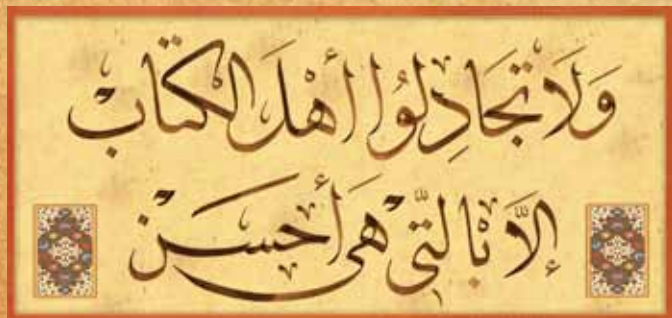 وَلَا تُجَادِلُوا أَهْلَ الْكِتَابِ
إِلَّا بِالَّتِي هِيَ أَحْسَن